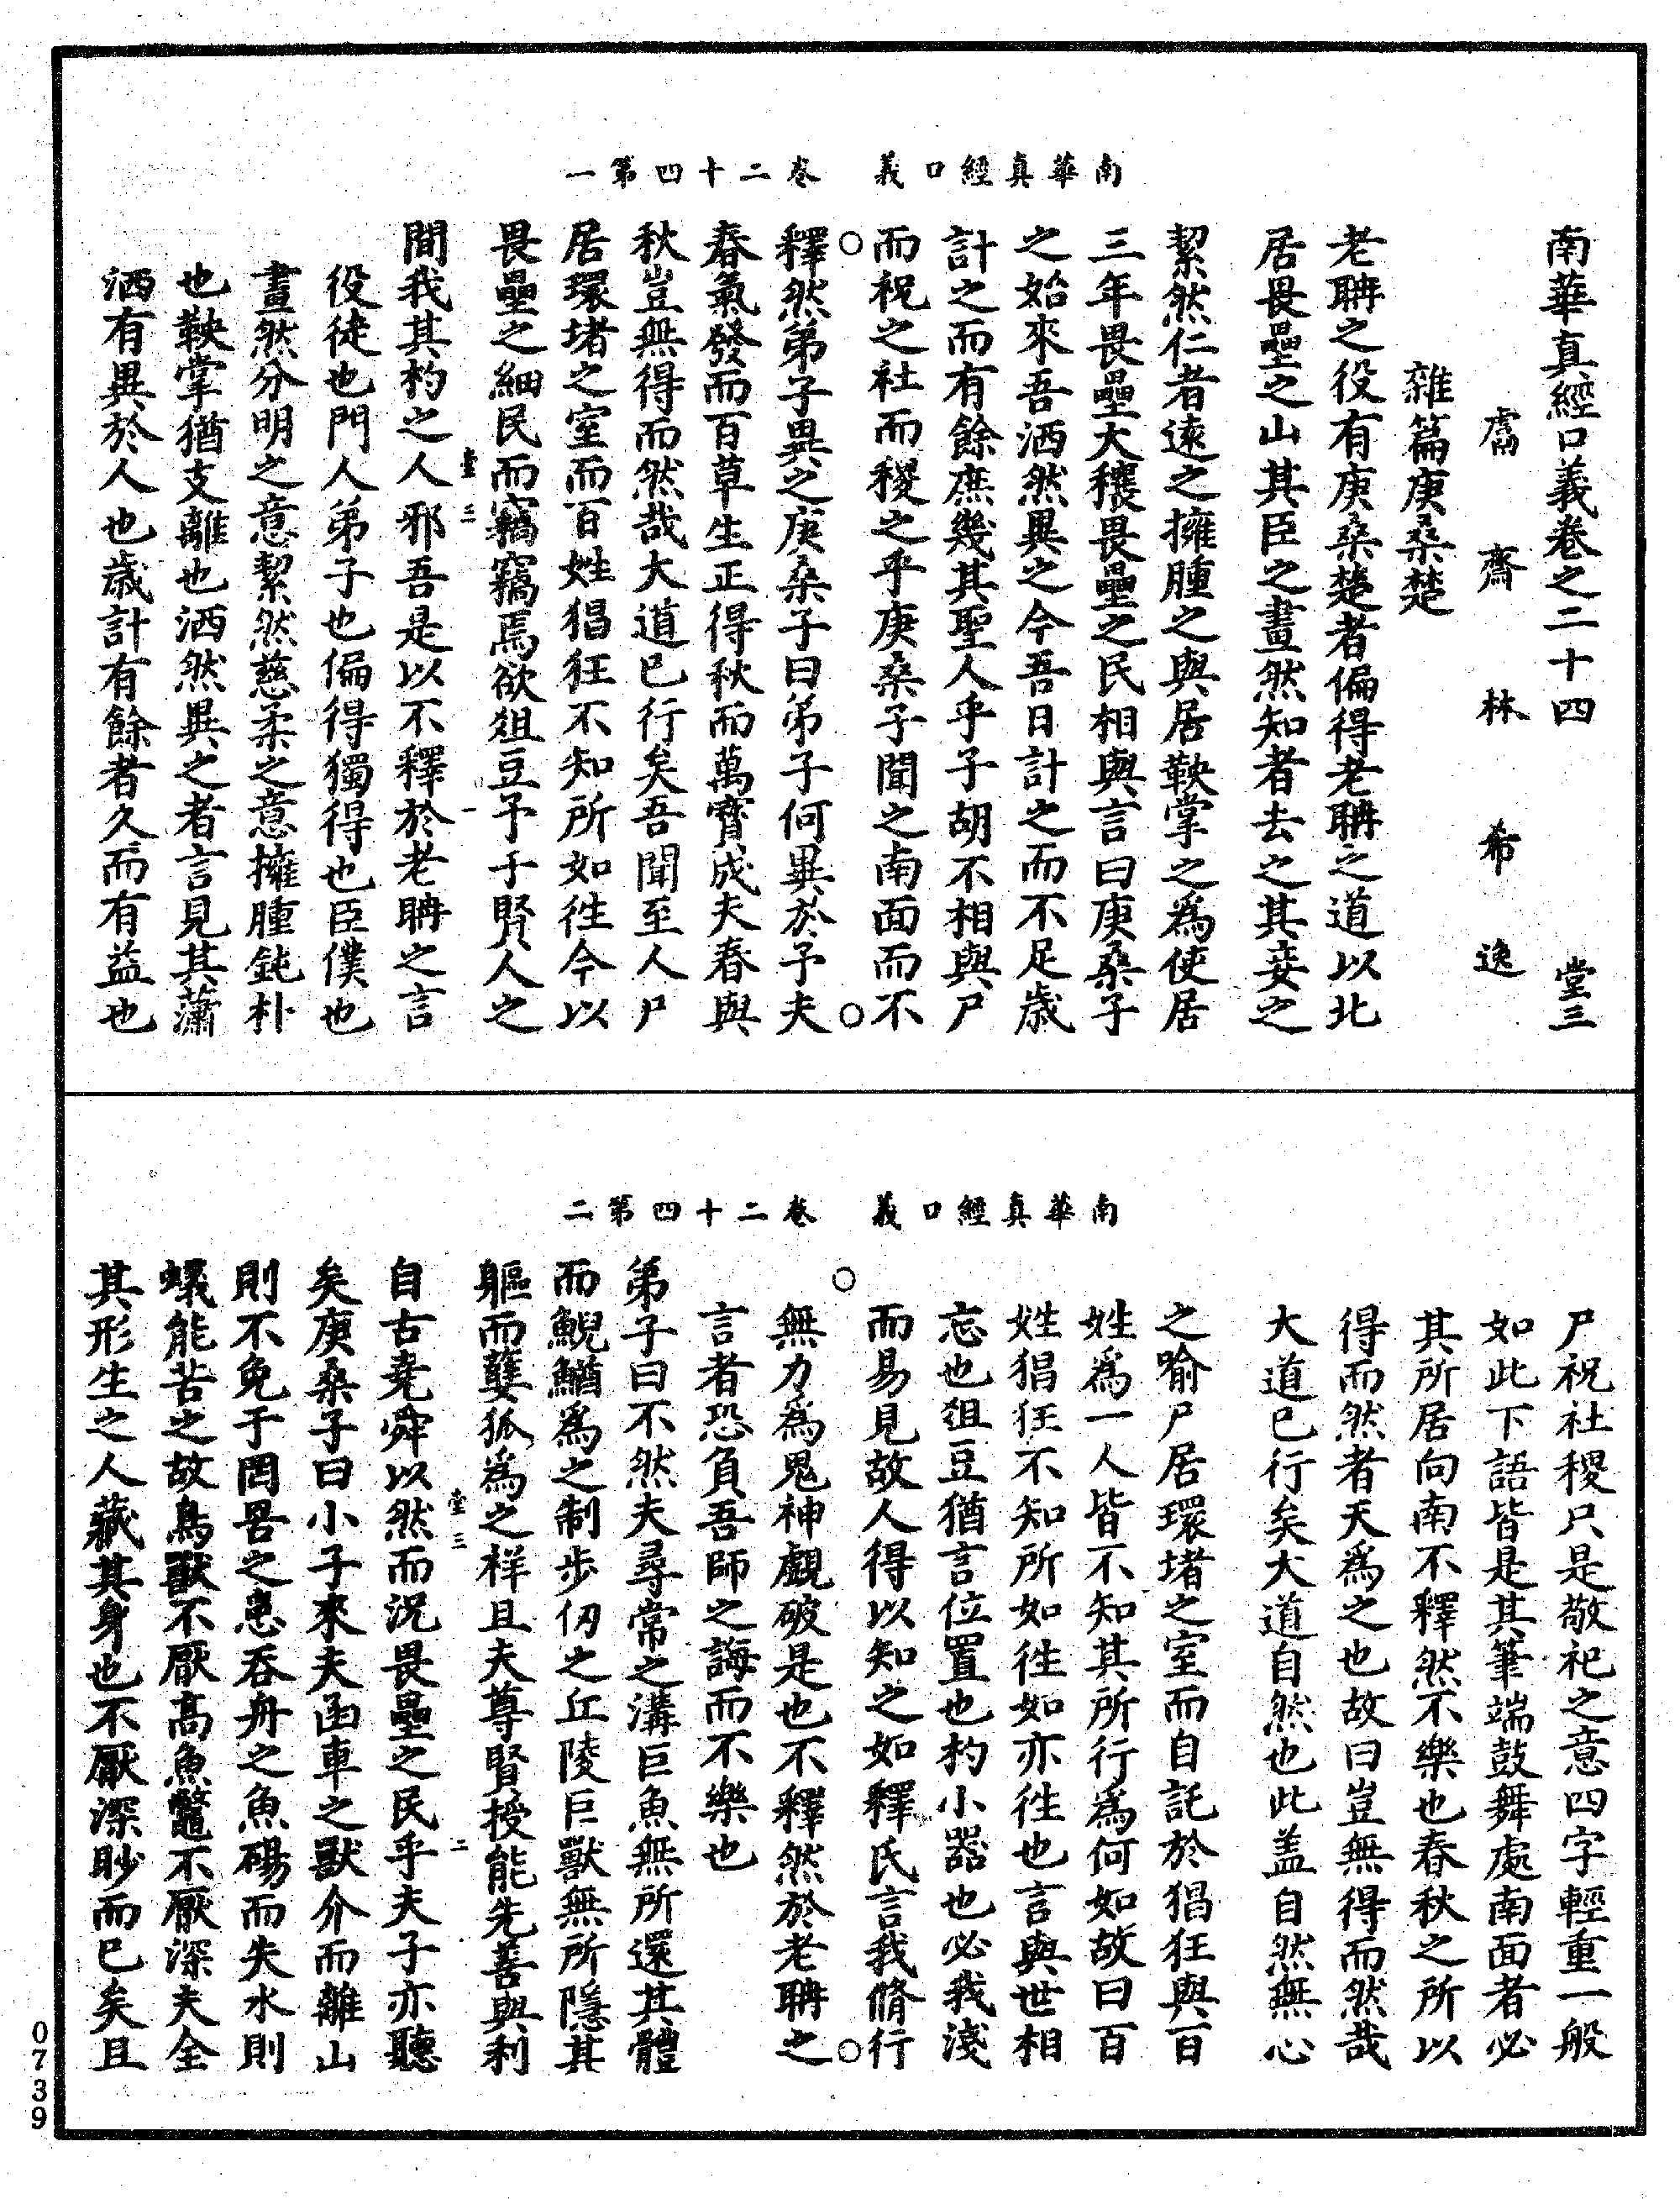 南華真經口義　卷二十四第一
南華真經口義卷之二十四　堂三
鬳齋林希逸
雜篇庚桑楚
老聃之役有庚桑楚者偏得老聃之道以北
居畏壘之山其臣之畫然知者去之其妾之
絜然仁者遠之擁腫之與居鞅掌之為使居
三年畏壘大穰畏壘之民相與言曰庚桑子
之始來吾洒然異之今吾日計之而不足歲
計之而有餘庶幾其聖人乎子胡不相與尸
而祝之社而稷之乎庚桑子聞之南面而不
釋然弟子異之庚桑子曰弟子何異於予夫
春氣發而百草生正得秋而萬寶成夫春與
秋豈無得而然哉大道已行矣吾聞至人尸
居環堵之室而百姓猖狂不知所如徃今以
畏壘之細民而竊竊焉欲俎豆予于賢人之
堂三　一
間我其杓之人邪吾是以不釋於老聃之言
役徒也門人弟子也偏得獨得也臣僕也
畫然分明之意絜然慈柔之意擁腫鈍朴
也鞅掌猶支離也洒然異之者言見其蕭
洒有異於人也歲計有餘者久而有益也
南華真經口義　卷二十四第二
尸祝社稷只是敬祀之意四字輕重一般
如此下語皆是其筆端鼓舞處南面者必
其所居向南不釋然不樂也春秋之所以
得而然者天為之也故曰豈無得而然哉
大道已行矣大道自然也此盖自然無心
之喻尸居環堵之室而自託於猖狂與百
姓為一人皆不知其所行為何如故曰百
姓猖狂不知所如徃如亦徃也言與世相
忘也俎豆猶言位置也杓小器也必我淺
而易見故人得以知之如釋氏言我脩行
無力為鬼神覷破是也不釋然於老聃之
言者恐負吾師之誨而不樂也
弟子曰不然夫尋常之溝巨魚無所還其體
而鯢鰌為之制步仞之丘陵巨獸無所隱其
軀而㜸狐為之祥且夫尊賢授能先善與利
堂三　二
自古堯舜以然而況畏壘之民乎夫子亦聽
矣庚桑子曰小子來夫函車之獸介而離山
則不免于罔罟之患吞舟之魚碭而失水則
蟻能苦之故鳥獸不厭高魚鼈不厭深夫全
其形生之人藏其身也不厭深眇而已矣且
0739